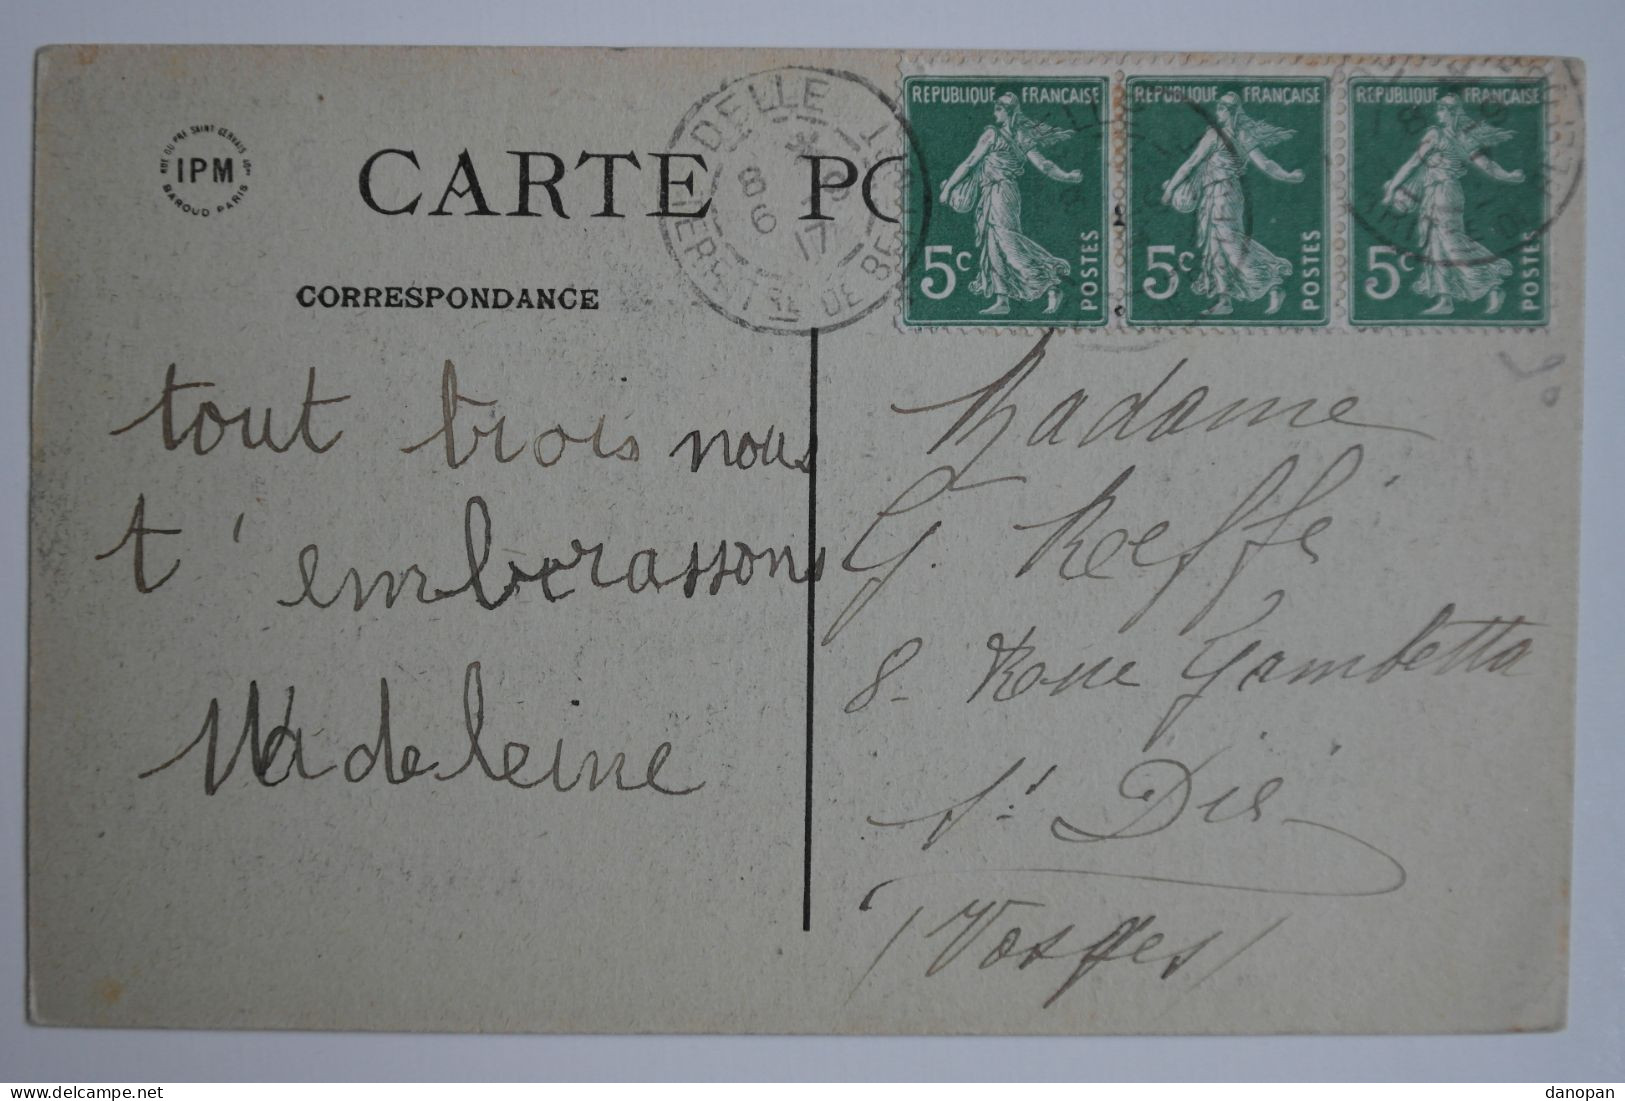 RUE DU PRE SAINT GERVAIS
IPM
BAROUD PARIS
CARTE PO
CORRESPONDANCE
DELLE
8 6 17
TERRITRE DE BELFORT
REPUBLIQUE FRANÇAISE
5c
POSTES
REPUBLIQUE FRANÇAISE
5c
POSTES
REPUBLIQUE FRANÇAISE
5c
POSTES
tout trois nous
t'embrassons
Madeleine
Madame
G. Roeffé
8- Rue Gambetta
St Dié
(Vosges)
danopan